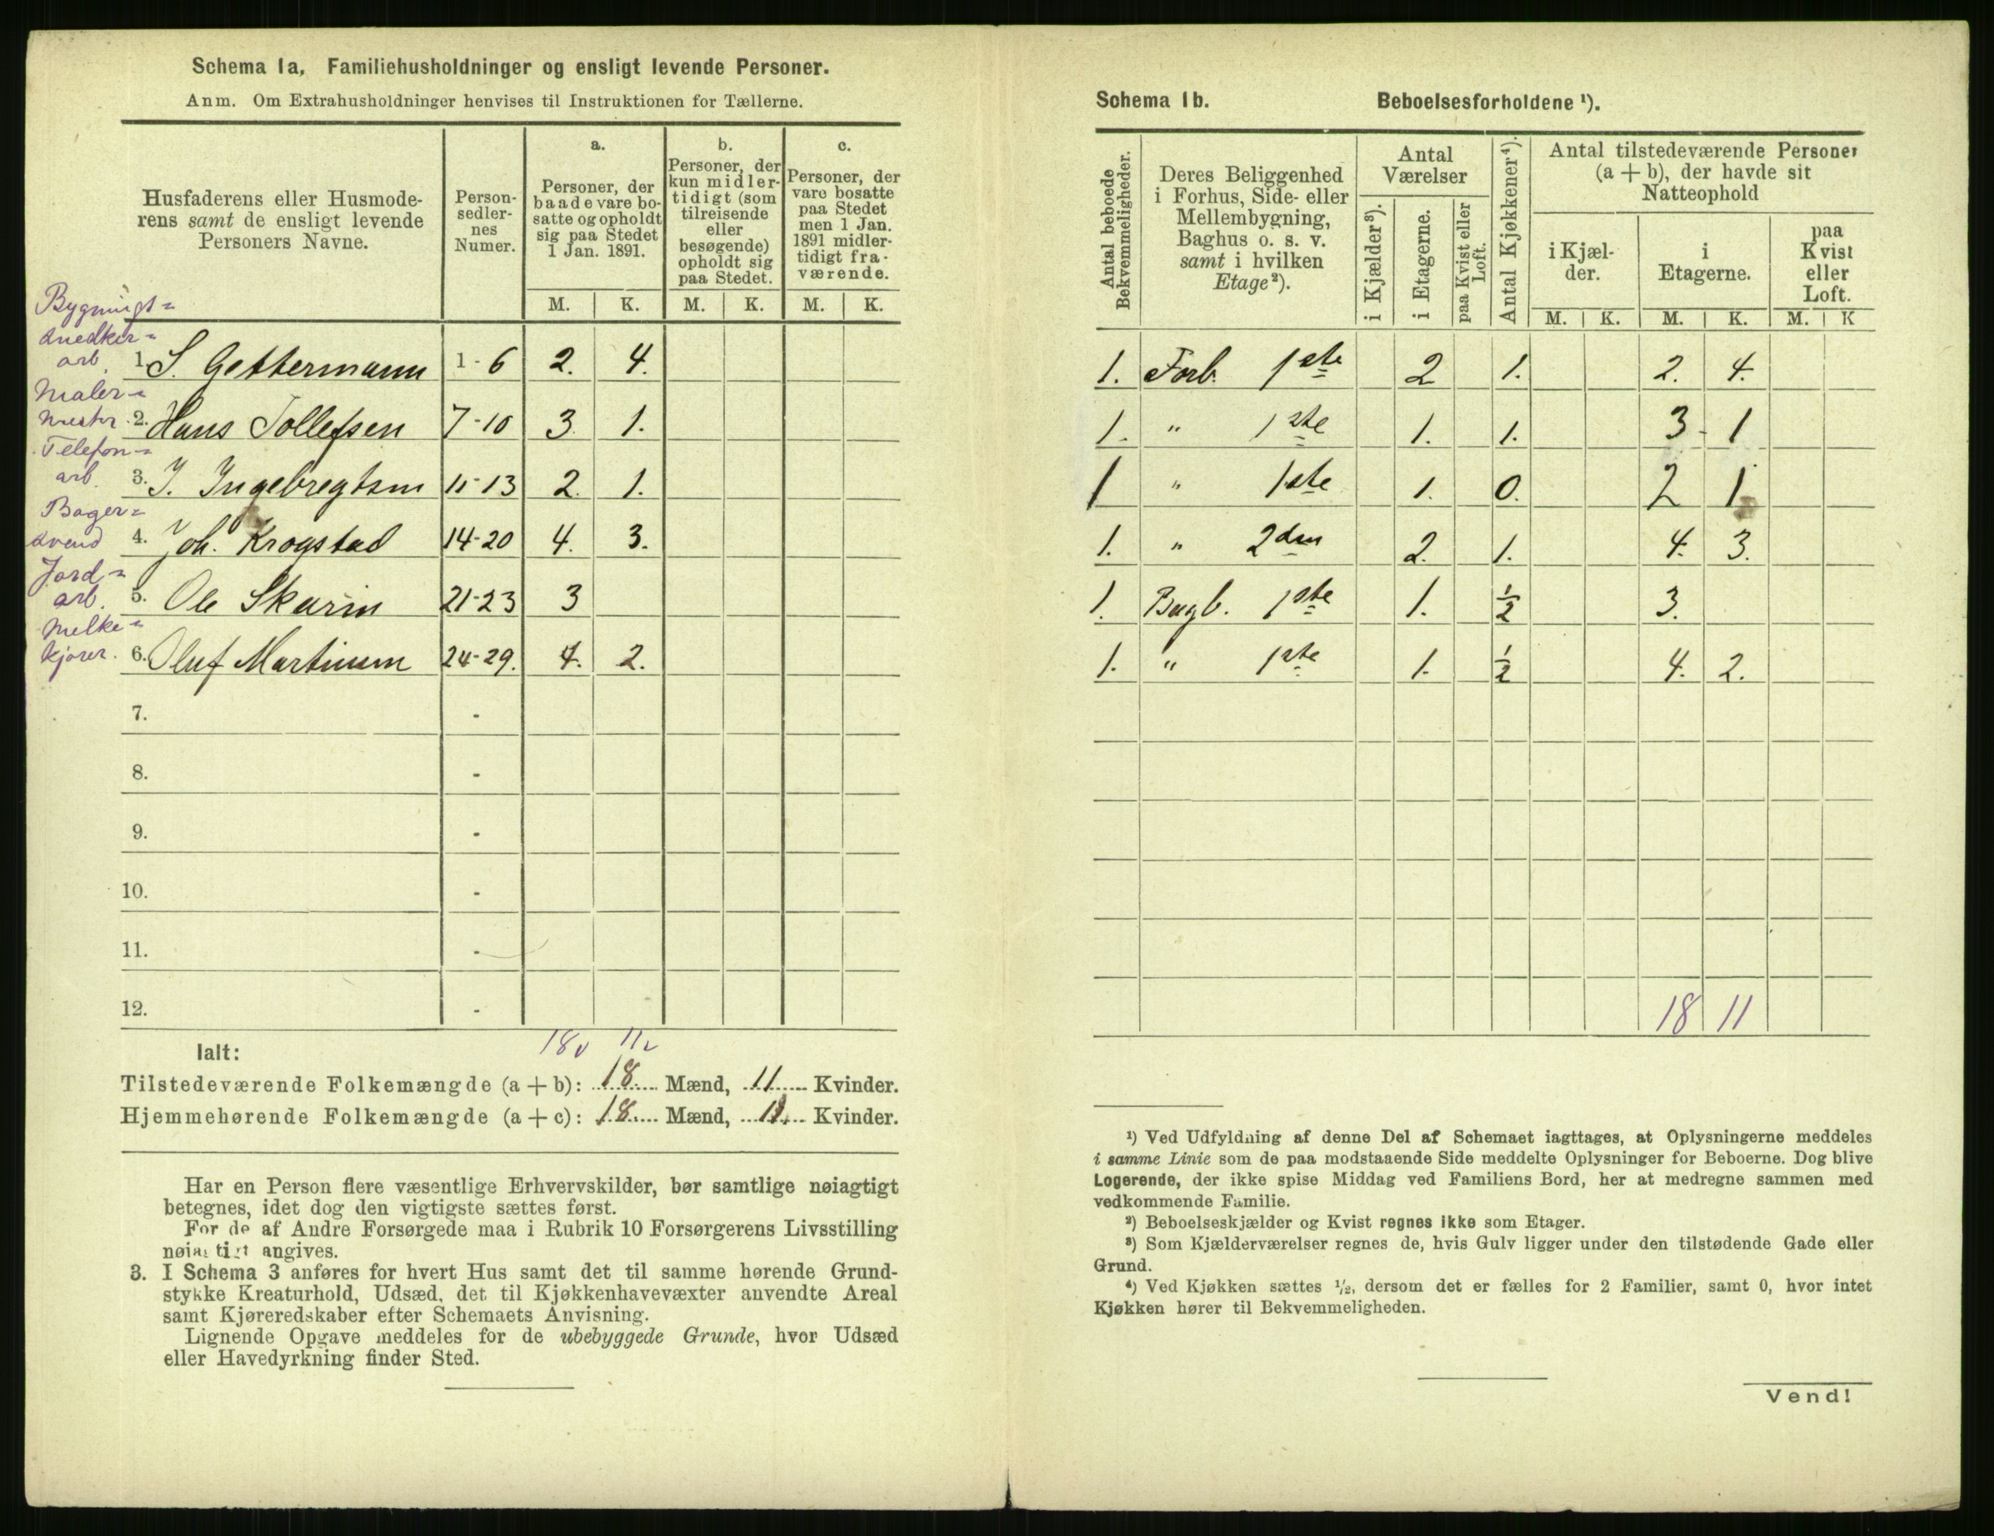 Schema 1a. Familiehusholdninger og ensligt levende Personer.
Anm. Om Extrahusholdninger henvises til Instruktionen for Tællerne.
Husfaderens eller Husmode-
rens samt de ensligt levende
Personers Navne.
Person-
sedler-
nes
Numer.
a.
Personer, der
baade vare bo-
satte og opholdt
sig paa Stedet
1 Jan. 1891.
b.
Personer, der
kun midler-
tidigt (som
tilreisende
eller
besøgende)
opholdt sig
paa Stedet.
c.
Personer, der
vare bosatte
paa Stedet
men 1 Jan.
1891 midler-
tidigt fra-
værende.
M. K. M. K. M. K.
Bygnings=
snedker=
arb. 1. S. Gettermann 1-6 2. 4.
Maler=
mestr. 2. Hans Tollefsen 7-10 3 1.
Telefon=
arb. 3. J. Ingebregtsen 11-13 2. 1.
Bager=
svend 4. Joh. Krogstad 14-20 4. 3.
Jord=
arb. 5. Ole Skarin 21-23 3
Melke=
kjører. 6. Oluf Martinsen 24-29. 4. 2.
7. -
8. -
9. -
10. -
11. -
12. -
18 11
Ialt:
Tilstedeværende Folkemængde (a + b): 18 Mænd, 11 Kvinder.
Hjemmehørende Folkemængde (a + c): 18. Mænd, 11. Kvinder.
Har en Person flere væsentlige Erhvervskilder, bør samtlige nøiagtigt
betegnes, idet dog den vigtigste sættes først.
For de af Andre Forsørgede maa i Rubrik 10 Forsørgerens Livsstilling
nøiagtigt angives.
3. I Schema 3 anføres for hvert Hus samt det til samme hørende Grund-
stykke Kreaturhold, Udsæd, det til Kjøkkenhavevæxter anvendte Areal
samt Kjøreredskaber efter Schemaets Anvisning.
Lignende Opgave meddeles for de ubebyggede Grunde, hvor Udsæd
eller Havedyrkning finder Sted.
Schema 1b. Beboelsesforholdene ¹).
Antal beboede
Bekvemmeligheder.
Deres Beliggenhed
i Forhus, Side- eller
Mellembygning,
Baghus o. s. v.
samt i hvilken
Etage²).
Antal
Værelser
i Kjælder³).
i Etagerne.
paa Kvist eller
Loft.
Antal Kjøkkener⁴).
Antal tilstedeværende Personer
(a + b), der havde sit
Natteophold
i Kjæl-
der.
i
Etagerne.
paa
Kvist
eller
Loft.
M. K. M. K. M. K
1. Forb. 1ste 2 1. 2. 4.
1. " 1ste 1. 1. 3- 1
1 " 1ste 1. 0. 2 1
1. " 2den 2. 1. 4. 3.
1. Bagb. 1ste 1. ½ 3.
1. " 1ste 1. ½ 4. 2.
18 11
¹) Ved Udfyldning af denne Del af Schemaet iagttages, at Oplysningerne meddeles
i samme Linie som de paa modstaaende Side meddelte Oplysninger for Beboerne. Dog blive
Logerende, der ikke spise Middag ved Familiens Bord, her at medregne sammen med
vedkommende Familie.
²) Beboelseskjælder og Kvist regnes ikke som Etager.
³) Som Kjælderværelser regnes de, hvis Gulv ligger under den tilstødende Gade eller
Grund.
⁴) Ved Kjøkken sættes ½, dersom det er fælles for 2 Familier, samt 0, hvor intet
Kjøkken hører til Bekvemmeligheden.
Vend!